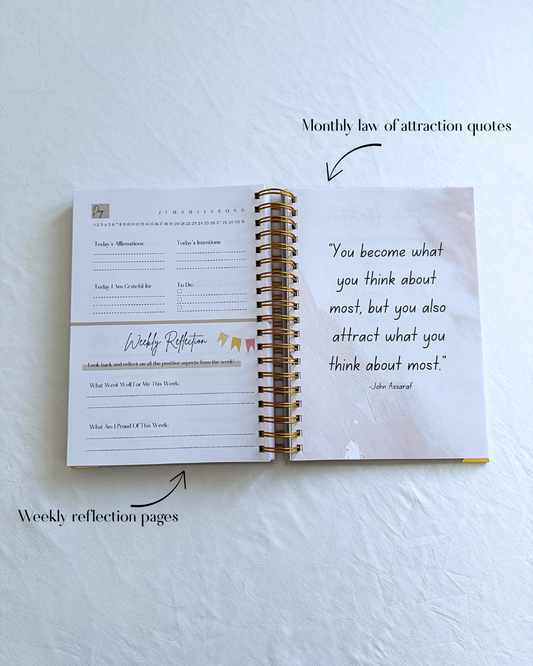 Monthly law of attraction quotes
Day
J F M A M J J A S O N D
1 2 3 4 5 6 7 8 9 10 11 12 13 14 15 16 17 18 19 20 21 22 23 24 25 26 27 28 29 30 31
Today's Affirmations
Today's Intentions
Today I Am Grateful for
To Do:
Weekly Reflection
Look back and reflect on all the positive aspects from the week!
What Went Well For Me This Week:
What Am I Proud Of This Week:
"You become what
you think about
most, but you also
attract what you
think about most."
-John Assaraf
Weekly reflection pages